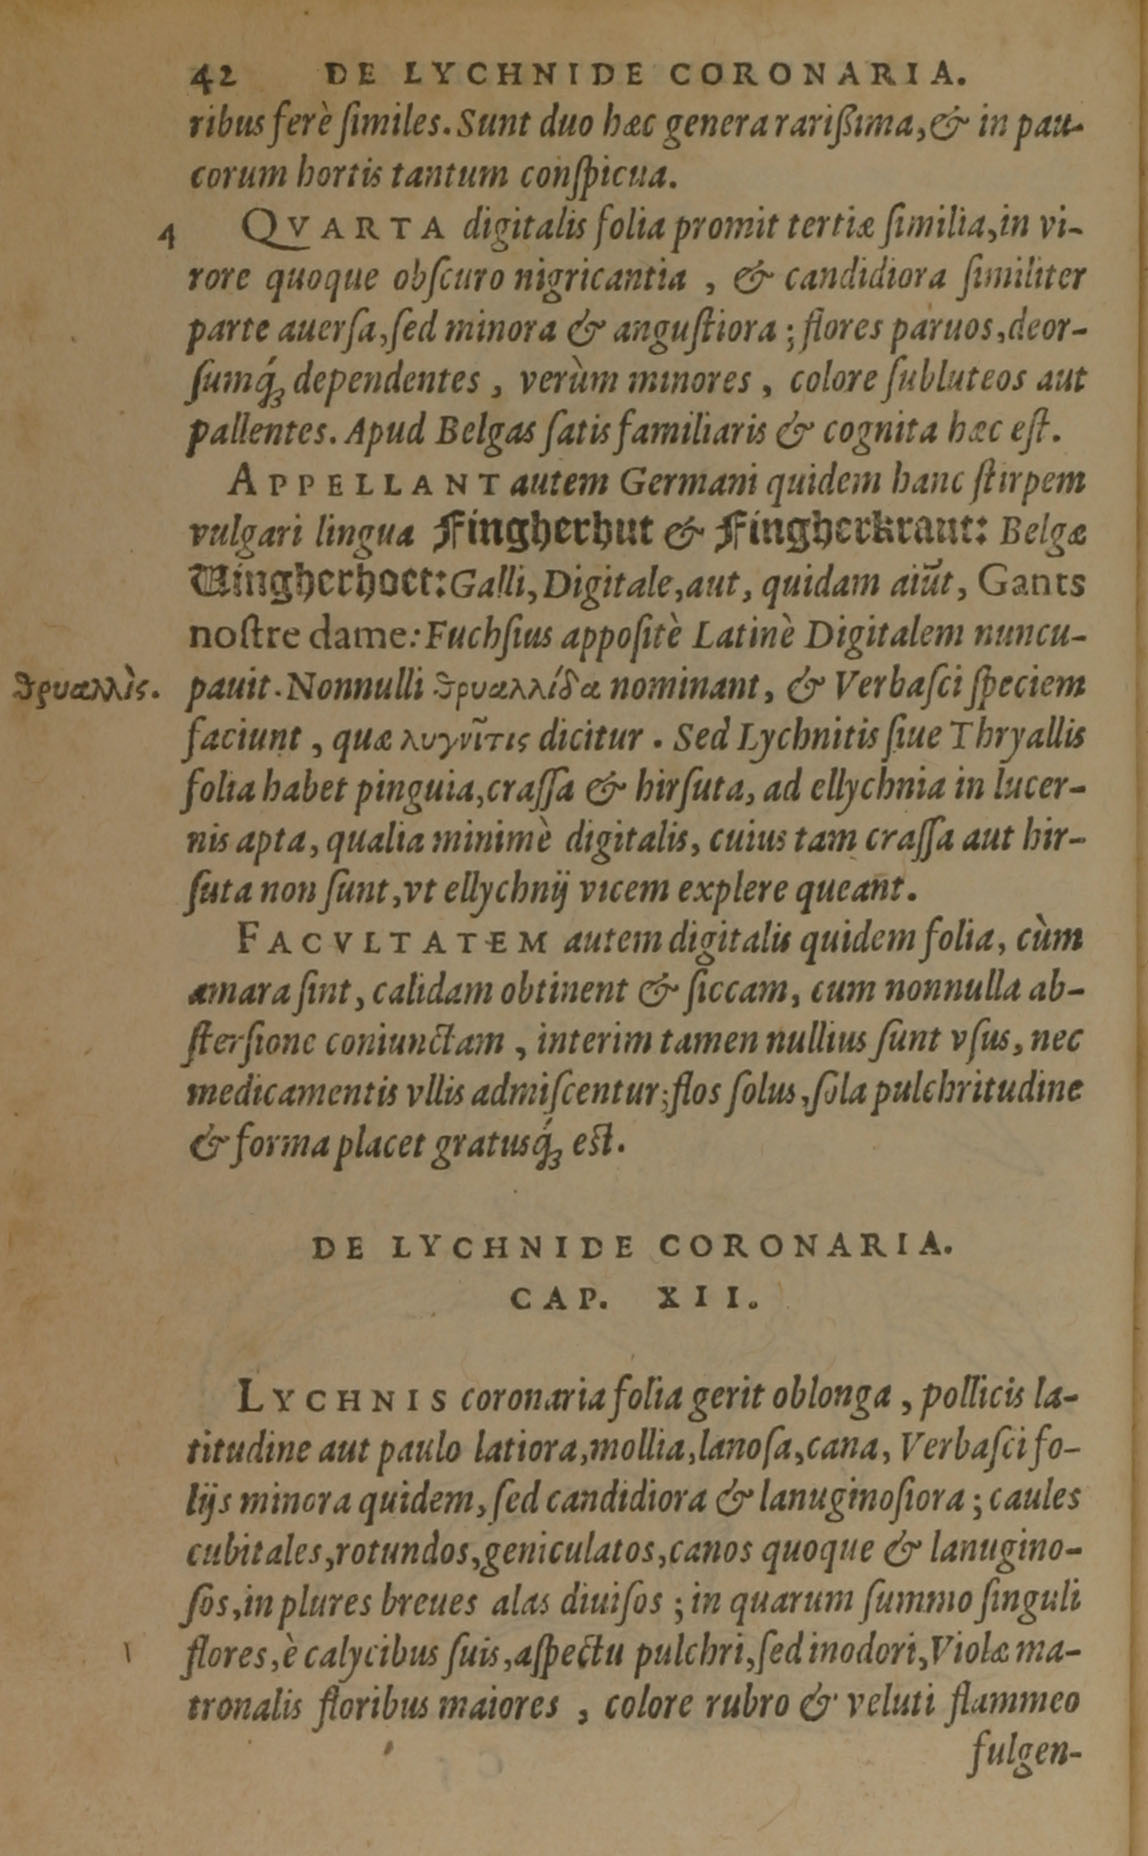 42 DE LYCHNIDE CORONARIA.
ribus ferè ſimiles. Sunt duo hæc genera rarißima, & in pau-
corum hortis tantum conſpicua.
4 QVARTA digitalis folia promit tertiæ ſimilia, in vi-
rore quoque obſcuro nigricantia , & candidiora ſimiliter
parte auerſa, ſed minora & anguſtiora ; flores paruos, deor-
ſumq́ꝫ dependentes , verùm minores , colore ſubluteos aut
pallentes. Apud Belgas ſatis familiaris & cognita hæc eſt.
APPELLANT autem Germani quidem hanc ſtirpem
vulgari lingua Fingherhut & Fingherkraut: Belgæ
Vingherhoet: Galli, Digitale, aut, quidam aiũt, Gants
noſtre dame: Fuchſius appoſitè Latinè Digitalem nuncu-
θρυαλλὶς. pauit. Nonnulli θρυαλλίδα nominant, & Verbaſci ſpeciem
faciunt , quæ λυχνῖτις dicitur . Sed Lychnitis ſiue Thryallis
folia habet pinguia, craſſa & hirſuta, ad ellychnia in lucer-
nis apta, qualia minimè digitalis, cuius tam craſſa aut hir-
ſuta non ſunt, vt ellychnij vicem explere queant.
FACVLTATEM autem digitalis quidem folia, cùm
amara ſint, calidam obtinent & ſiccam, cum nonnulla ab-
ſterſione coniunctam , interim tamen nullius ſunt vſus, nec
medicamentis vllis admiſcentur; flos ſolus, ſola pulchritudine
& forma placet gratusq́ꝫ eſt.
DE LYCHNIDE CORONARIA.
CAP. XII.
LYCHNIS coronaria folia gerit oblonga , pollicis la-
titudine aut paulo latiora, mollia, lanoſa, cana, Verbaſci fo-
lijs minora quidem, ſed candidiora & lanuginoſiora ; caules
cubitales, rotundos, geniculatos, canos quoque & lanugino-
ſos, in plures breues alas diuiſos ; in quarum ſummo ſinguli
1 flores, è calycibus ſuis, aſpectu pulchri, ſed inodori, Violæ ma-
tronalis floribus maiores , colore rubro & veluti flammeo
fulgen-